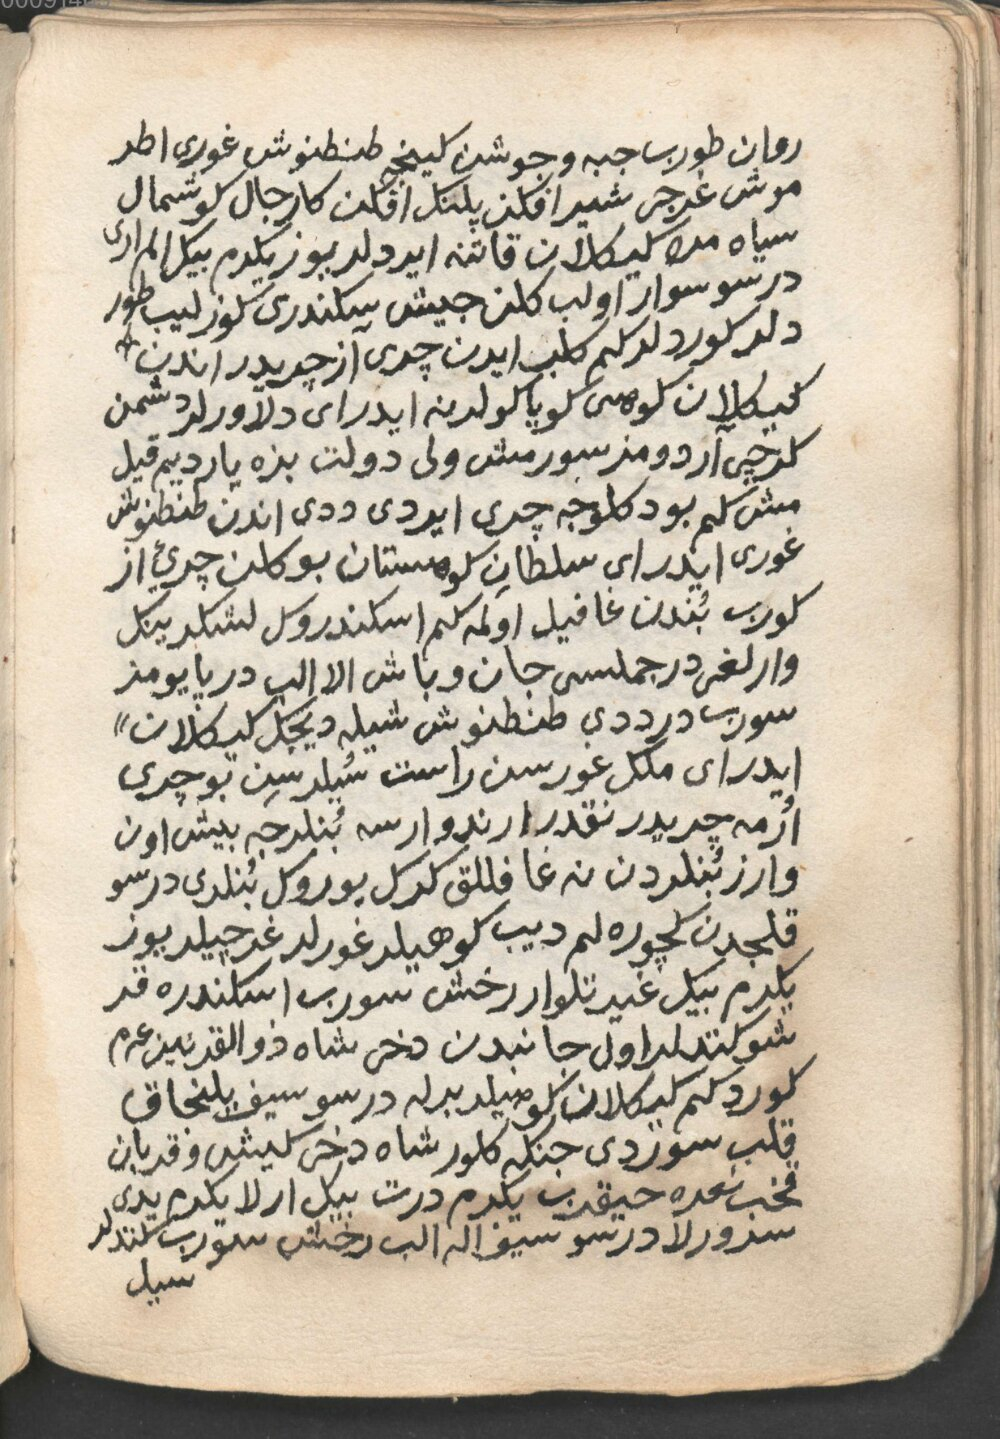 روان طورب جبه و جوشن کینجه طنطنوش غوری اطر
موش غرجی شیر افکن پلنک افکن کارجال کوشمال
سیاه مرد کیکلان قاتنه ایردلر یوز یکرم بیک الم اری
درسو سوار اولب کلن جیش سکندری کوزلیب طور
دلر کوردلرکم کلب ایدن چری آز چریدر اندن
کیکلان کوهی کویا کولرنه ایدر ای دلاورلر دشمن
کرچی آردومز سورمش ولی دولت بزه یاردیم قیل
مش کم بودکلوجه چری ایردی ددی اندن طنطنوش
غوری ایدر ای سلطان کوهستان بو کلن چریٔ از
کورب بُندن غافیل اولمه کم اسکندروکل لشکرینک
وارلغی در جملسی جان و باش الا الب دریا یومز
سورب در ددی طنطنوش شیله دیجکل کیکلان
ایدر ای ملکل غور سن راست سُیلرسن بو چری
اُزمه چریدر نقدر ارندوارسه بُنلرجه بیش اون
وارز بُنلردن نه غافللق کرکل یوروکل بُنلری درسو
قلجدن کچوره لم دیب کوهیلر غورلر غرجیلر یوز
یکرم بیکل غیر تلوار رخش سورب اسکندره قر
شو کتدلر اول جانبدن دخی شاه ذو القرنین عزم
کوردکم کیکلان کوهیلر برله درسو سیف یلنجاق
قلب سوزدی جنکه کلور شاه دخی کیش و قربان
قخب نعره حیقرب یکرم درت بیکل ارلا یکرم یدی
سزورلا درسو سیف اله الب رخش سورب کتدلر
سیل